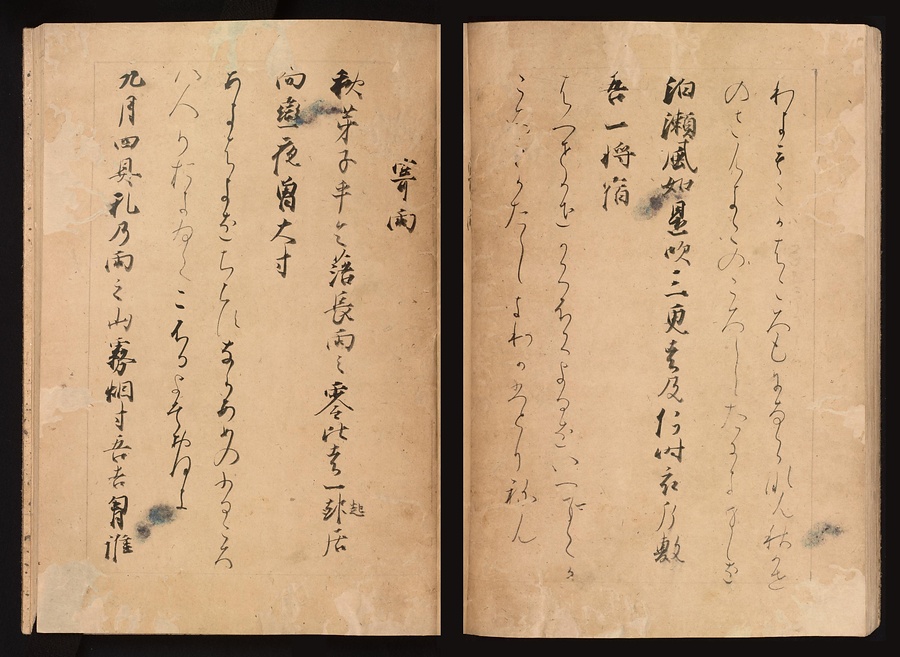 わきもこかころもにあらなん秋かせ
のさむきこのころしたにきましを
泊瀬風如是吹三更者及何時衣片敷
吾一将宿
はつせかせかくふくよるはいつまてか
ころもかたしきわかひとり祢ん
寄雨
秋芽子乎令落長雨之零比者一起居
而戀夜曽大寸
あきはきをちらすなかあめのふるころ
はひとりおきゐてこふるよそおほき
九月四具礼乃雨之山霧烟寸吾吉胸誰